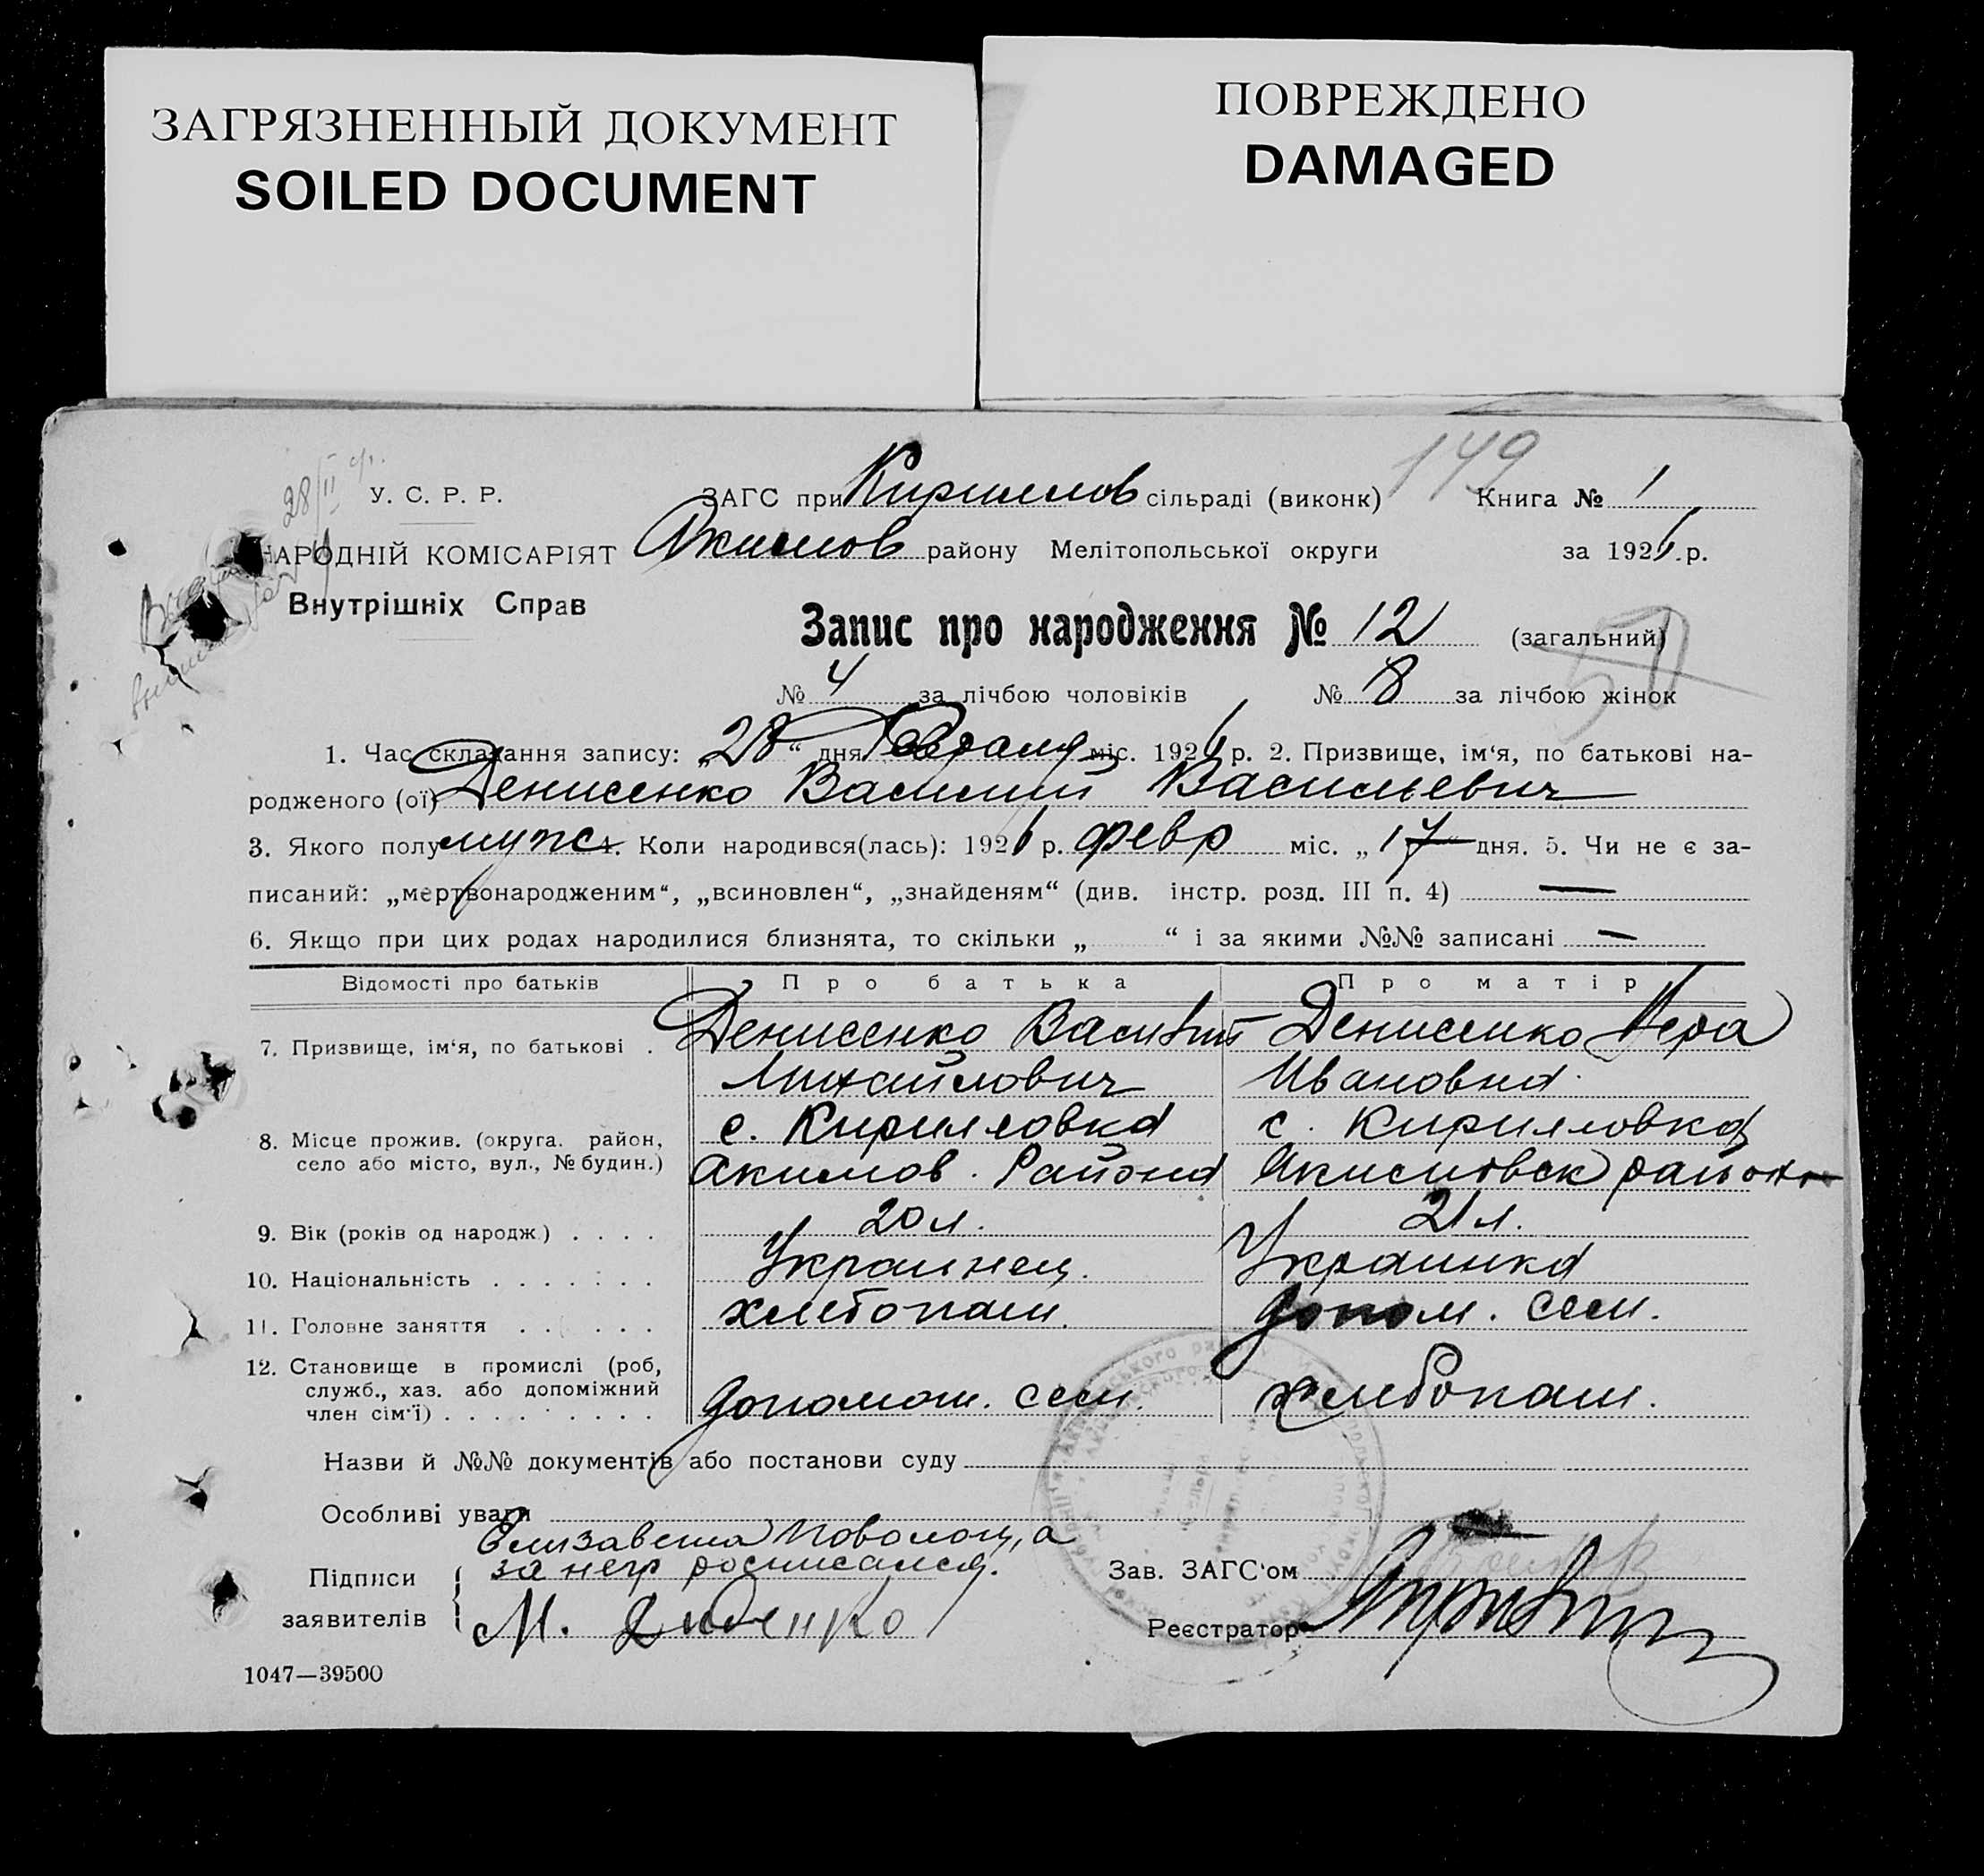 ЗАГРЯЗНЕННЫЙ ДОКУМЕНТ
SOILED DOCUMENT
ПОВРЕЖДЕНО
DAMAGED
149
28/II
У. С. Р. Р.
ЗАГС при Кириллов сільраді (виконк) Книга № 1
НАРОДНІЙ КОМІСАРІЯТ
Акимов району Мелітопольської округи за 1926 р.
Внутрішніх Справ
Запис про народження № 12 (загальний)
50
№ 4 за лічбою чоловіків № 8 за лічбою жінок
1. Час складання запису: „28“ дня Февраля міс. 1926 р. 2. Призвище, ім‘я, по батькові на-
родженого (ої) Денисенко Василий Васильевич
3. Якого полу муж 4. Коли народився(лась): 1926 р. февр міс. „17“ дня. 5. Чи не є за-
писаний: „мертвонародженим“, „всиновлен“, „знайденям“ (див. інстр. розд. III п. 4) —
6. Якщо при цих родах народилися близнята, то скільки „ “ і за якими №№ записані —
Відомості про батьків Про батька Про матір
7. Призвище, ім‘я, по батькові . Денисенко Василий Денисенко Вера
Михайлович Ивановна
8. Місце прожив. (округа. район, с. Кирилловка с. Кирилловка
село або місто, вул., № будин.) Акимов. Района Акимовск района
9. Вік (років од народж.) . . . . 20 л. 21 л.
10. Національність . . . . . . . Украинец. Украинка
11. Головне заняття . . . . . . хлебопаш. допом. сем.
12. Становище в промислі (роб,
служб., хаз. або допоміжний
член сім‘ї) . . . . . . . . . допомош. сем. хлебопаш.
Назви й №№ документів або постанови суду
Особливі уваги
Елизавета а
за нег росписался.
Підписи
заявителів
М. Диденко
Зав. ЗАГС‘ом
Реєстратор
1047—39500